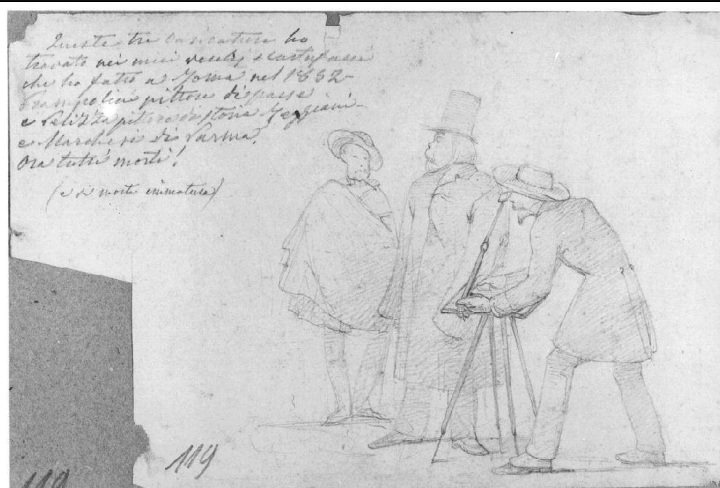 Queste tre caricature ho
trovate nei miei vecchj scartafacci
che ho fatto a Roma nel 1852-
Prampolini pittore di paese
e Pelizza pittore di storia Reggiani
e Marchesi di Parma.
Ora tutti morti!
(e di morte immatura)
119
119